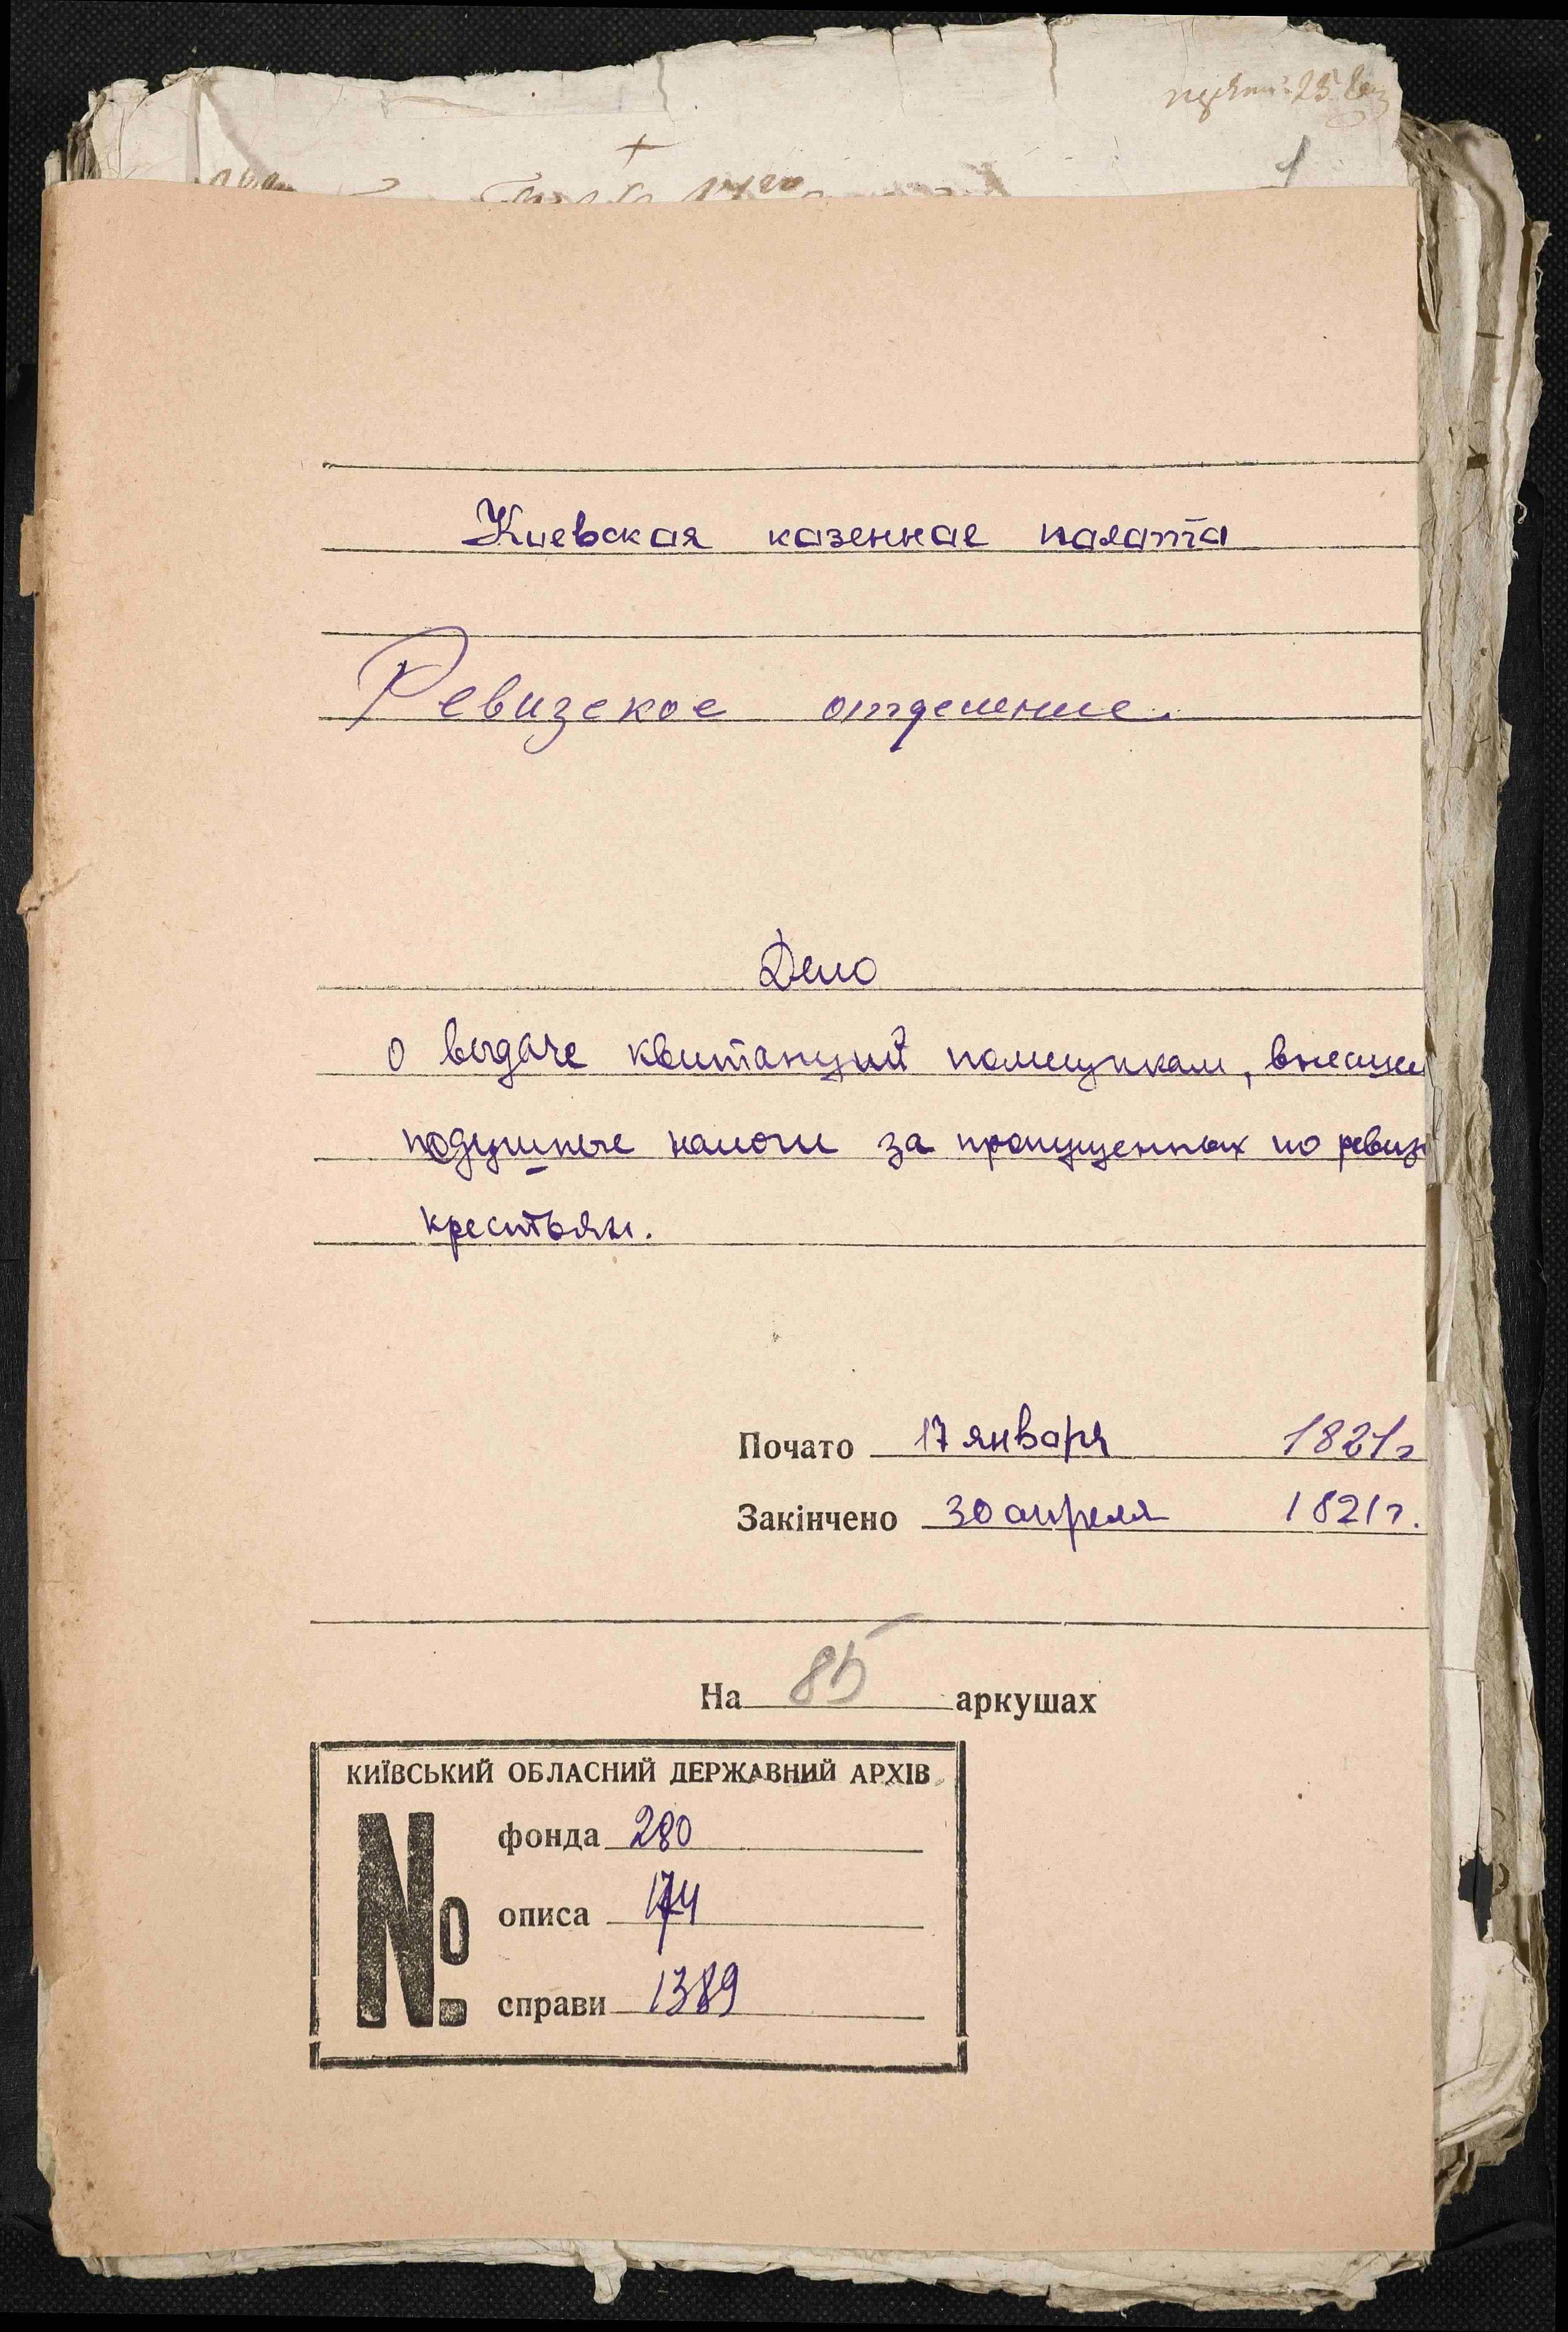 1
Киевская казенная палата
Ревизское отделение.
Дело
о выдаче квитанций помещикам, внесшим
подушные налоги за пропущенных по ревиз
крестьян.
Почато 17 января 1821г
Закінчено 30 апреля 1821г.
На 85 аркушах
КИЇВСЬКИЙ ОБЛАСНИЙ ДЕРЖАВНИЙ АРХІВ
№
фонда 280
описа 174
справи 1389